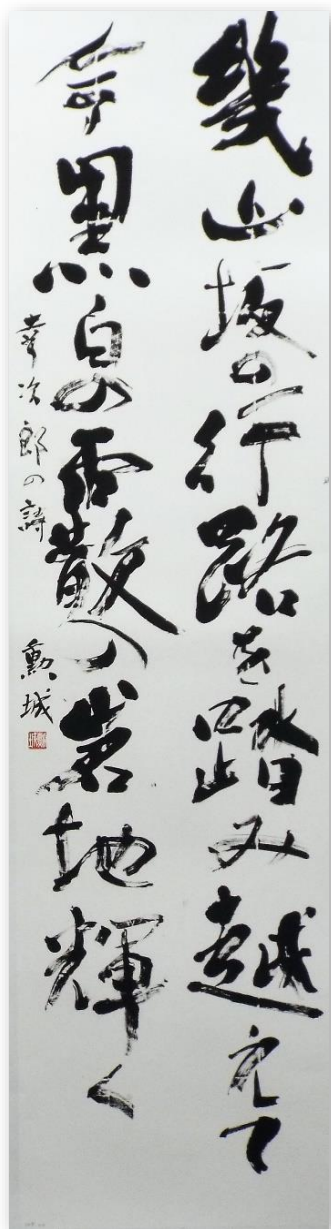 幾山坂の行路を踏み越えて
黒の雨散岩地輝く
幸次郎の詩
勲城